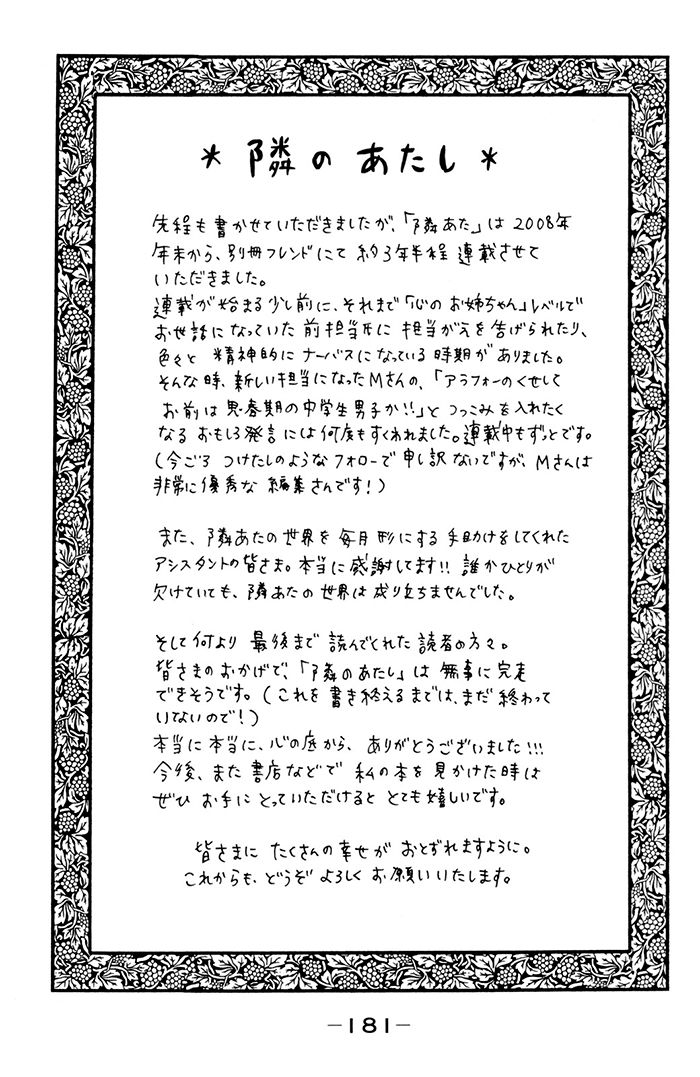 ＊ 隣のあたし ＊
先程も書かせていただきましたが、「隣あた」は2008年
年末から、別冊フレンドにて 約3年半程 連載させて
いただきました。
連載が始まる少し前に、それまで「心のお姉ちゃん」レベルで
お世話になっていた 前担当氏に 担当がえを告げられたり、
色々と 精神的に ナーバスになっている時期がありました。
そんな時、新しい担当になったMさんの、「アラフォーのくせして
お前は思春期の中学生男子か!!」と つっこみを入れたく
なるおもしろ発言には何度もすくわれました。連載中もずっとです。
(今ごろ つけたしのようなフォローで申し訳ないですが、Mさんは
非常に優秀な 編集さんです!)
また、隣あたの世界を毎月形にする手助けをしてくれた
アシスタントの皆さま。本当に感謝してます!! 誰かひとりが
欠けていても、隣あたの世界は成り立ちませんでした。
そして何より 最後まで 読んでくれた読者の方々。
皆さまのおかげで、「隣のあたし」は 無事に完走
できそうです。(これを書き終えるまでは、まだ終わって
いないので!)
本当に本当に、心の底から、ありがとうございました!!!
今後、また書店などで 私の本を見かけた時は
ぜひ お手にとっていただけると とても嬉しいです。
皆さまに たくさんの幸せが おとずれますように。
これからも、どうぞ よろしく お願いいたします。
―181―